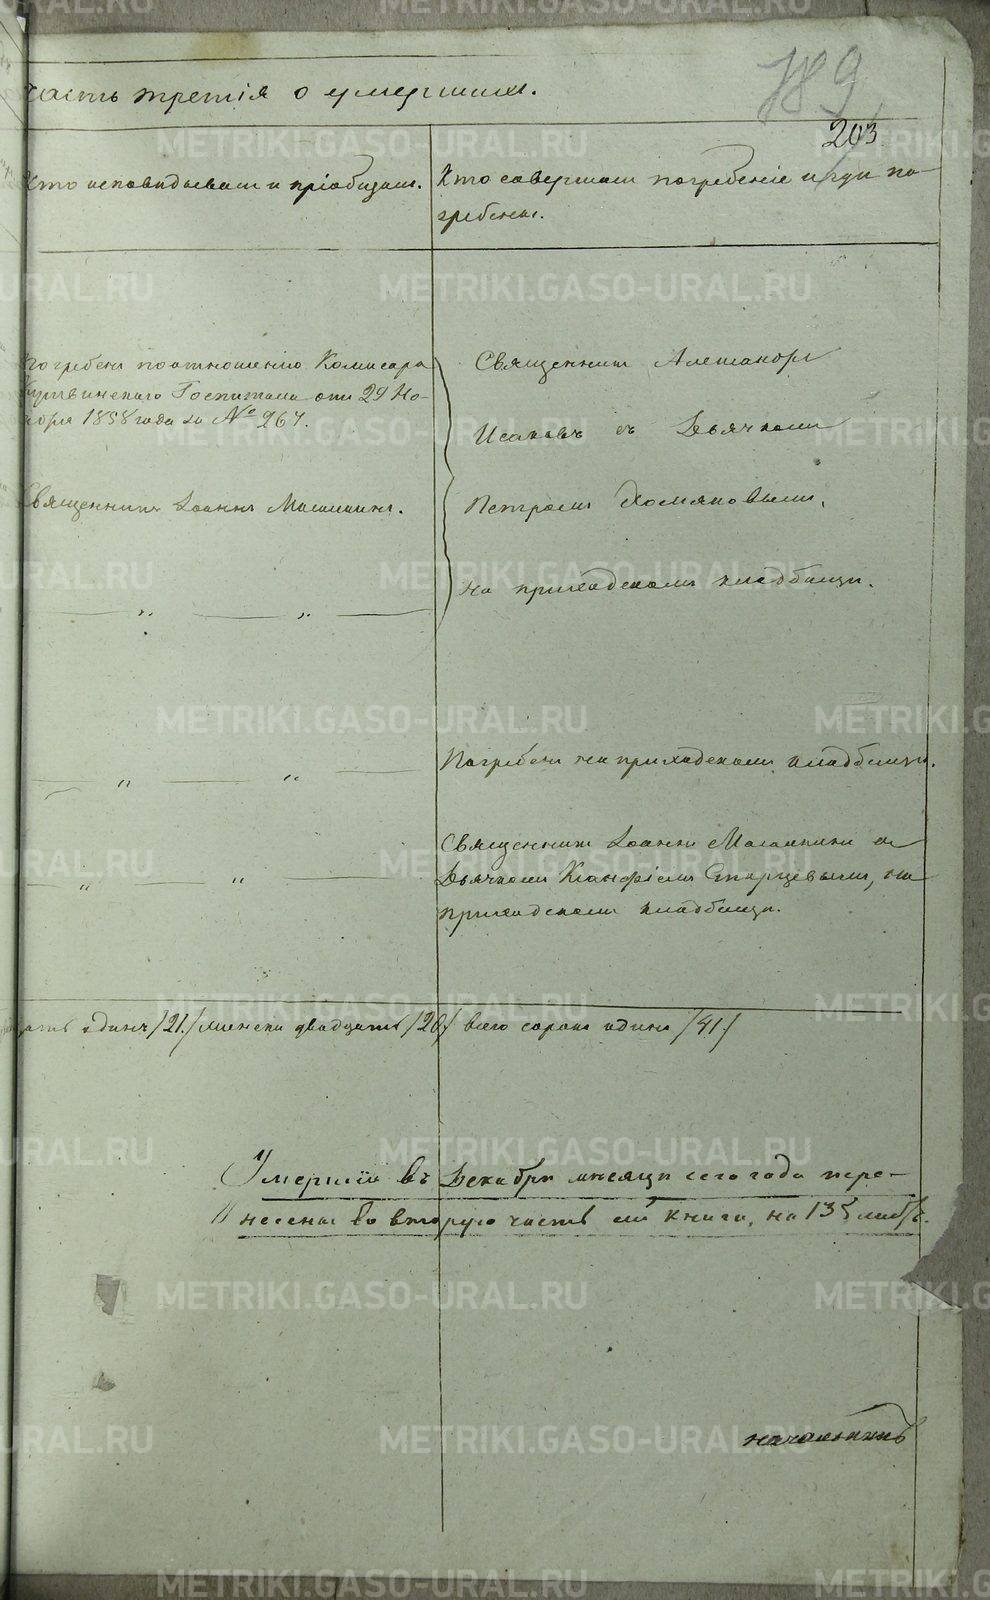 189
часть третія о умершихъ.
203
Кто исповѣдывалъ и пріобщалъ.
Кто совершалъ погребеніе и гдѣ по-
гребены.
Погребенъ по отношенію Комисара
Госпиталя отъ 29 Но-
ября 1858 года за № 267.
Священникъ Іоаннъ
Священникъ Александръ
Исаковъ съ Дьячкомъ
Петромъ Хомяковымъ,
на приходскомъ кладбищѣ.
Погребенъ на приходскомъ кладбищѣ.
Священникъ Іоаннъ съ
Дьячкомъ Старцевымъ, на
приходскомъ кладбищѣ.
одинъ /21./ женска двадцать /20/ всего сорокъ одинъ /41./
Умершіе въ Декабрѣ мѣсяцѣ сего года пере-
несены во вторую часть сей книги, на 135 листъ.
начальникъ
METRIKI.GASO-URAL.RU